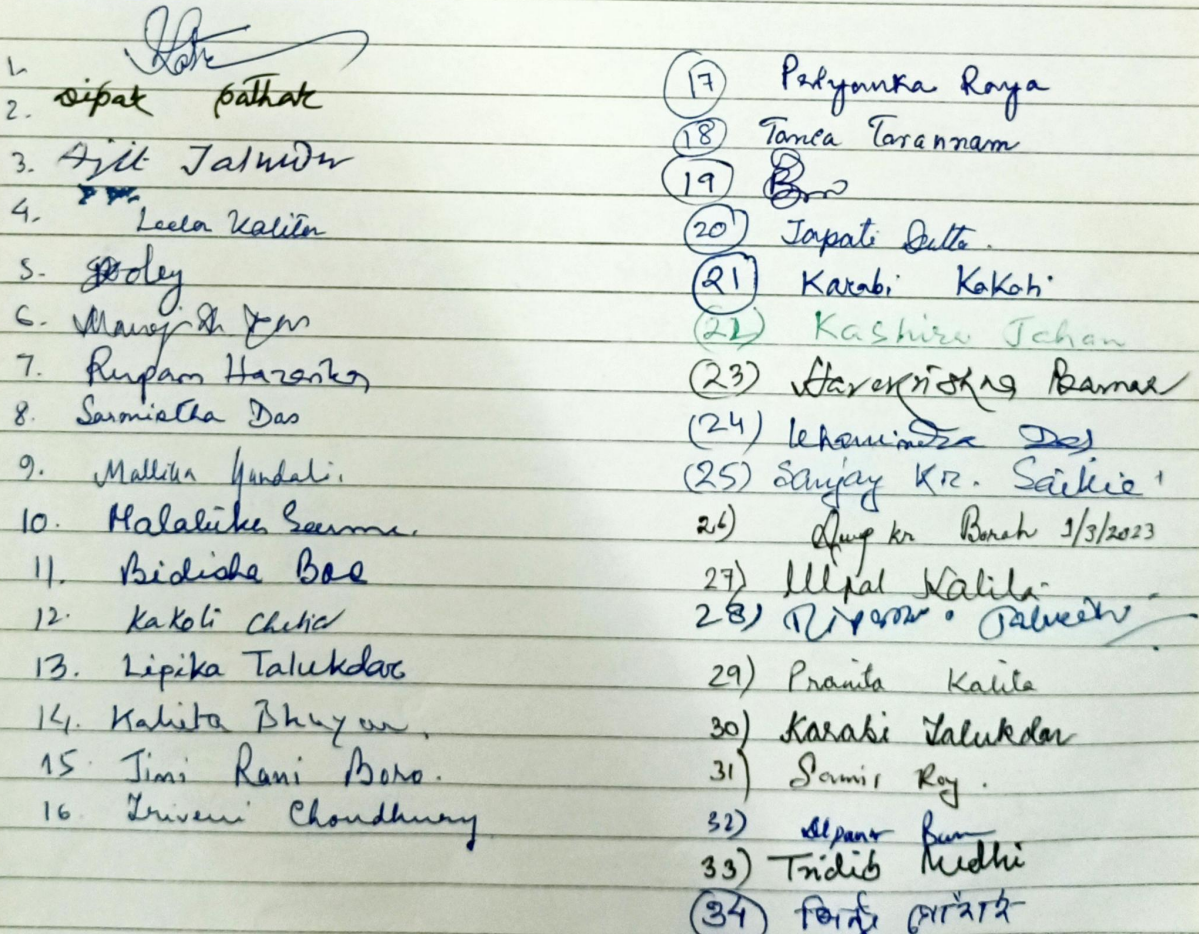 1.
2. Dipak Pathak
3. Ajit Talukdar
4. Leela Kalita
5. Doley
6. Manoj Das
7. Rupam Hazarika
8. Sarmistha Das
9. Mallika Kundali.
10. Malabika Sarma.
11. Bidisha Bora
12. Kakoli Chetia
13. Lipika Talukdar
14. Kabita Bhuyan.
15. Jimi Rani Boro.
16 Triveni Choudhury
17 Priyanka Raya
18 Tanea Tarannam
19
20 Tapati Dutta.
21 Karabi Kakoti
(22) Jahan
(23) Harekrishna Barman
(24) Das
(25) Sanjay Kr. Saikia
26) kr Borah 1/3/2023
27) Utpal Kalita
28)
29) Pranita Kalita
30) Karabi Talukdar
31) Samir Roy.
32) Alpana
33) Tridib
34